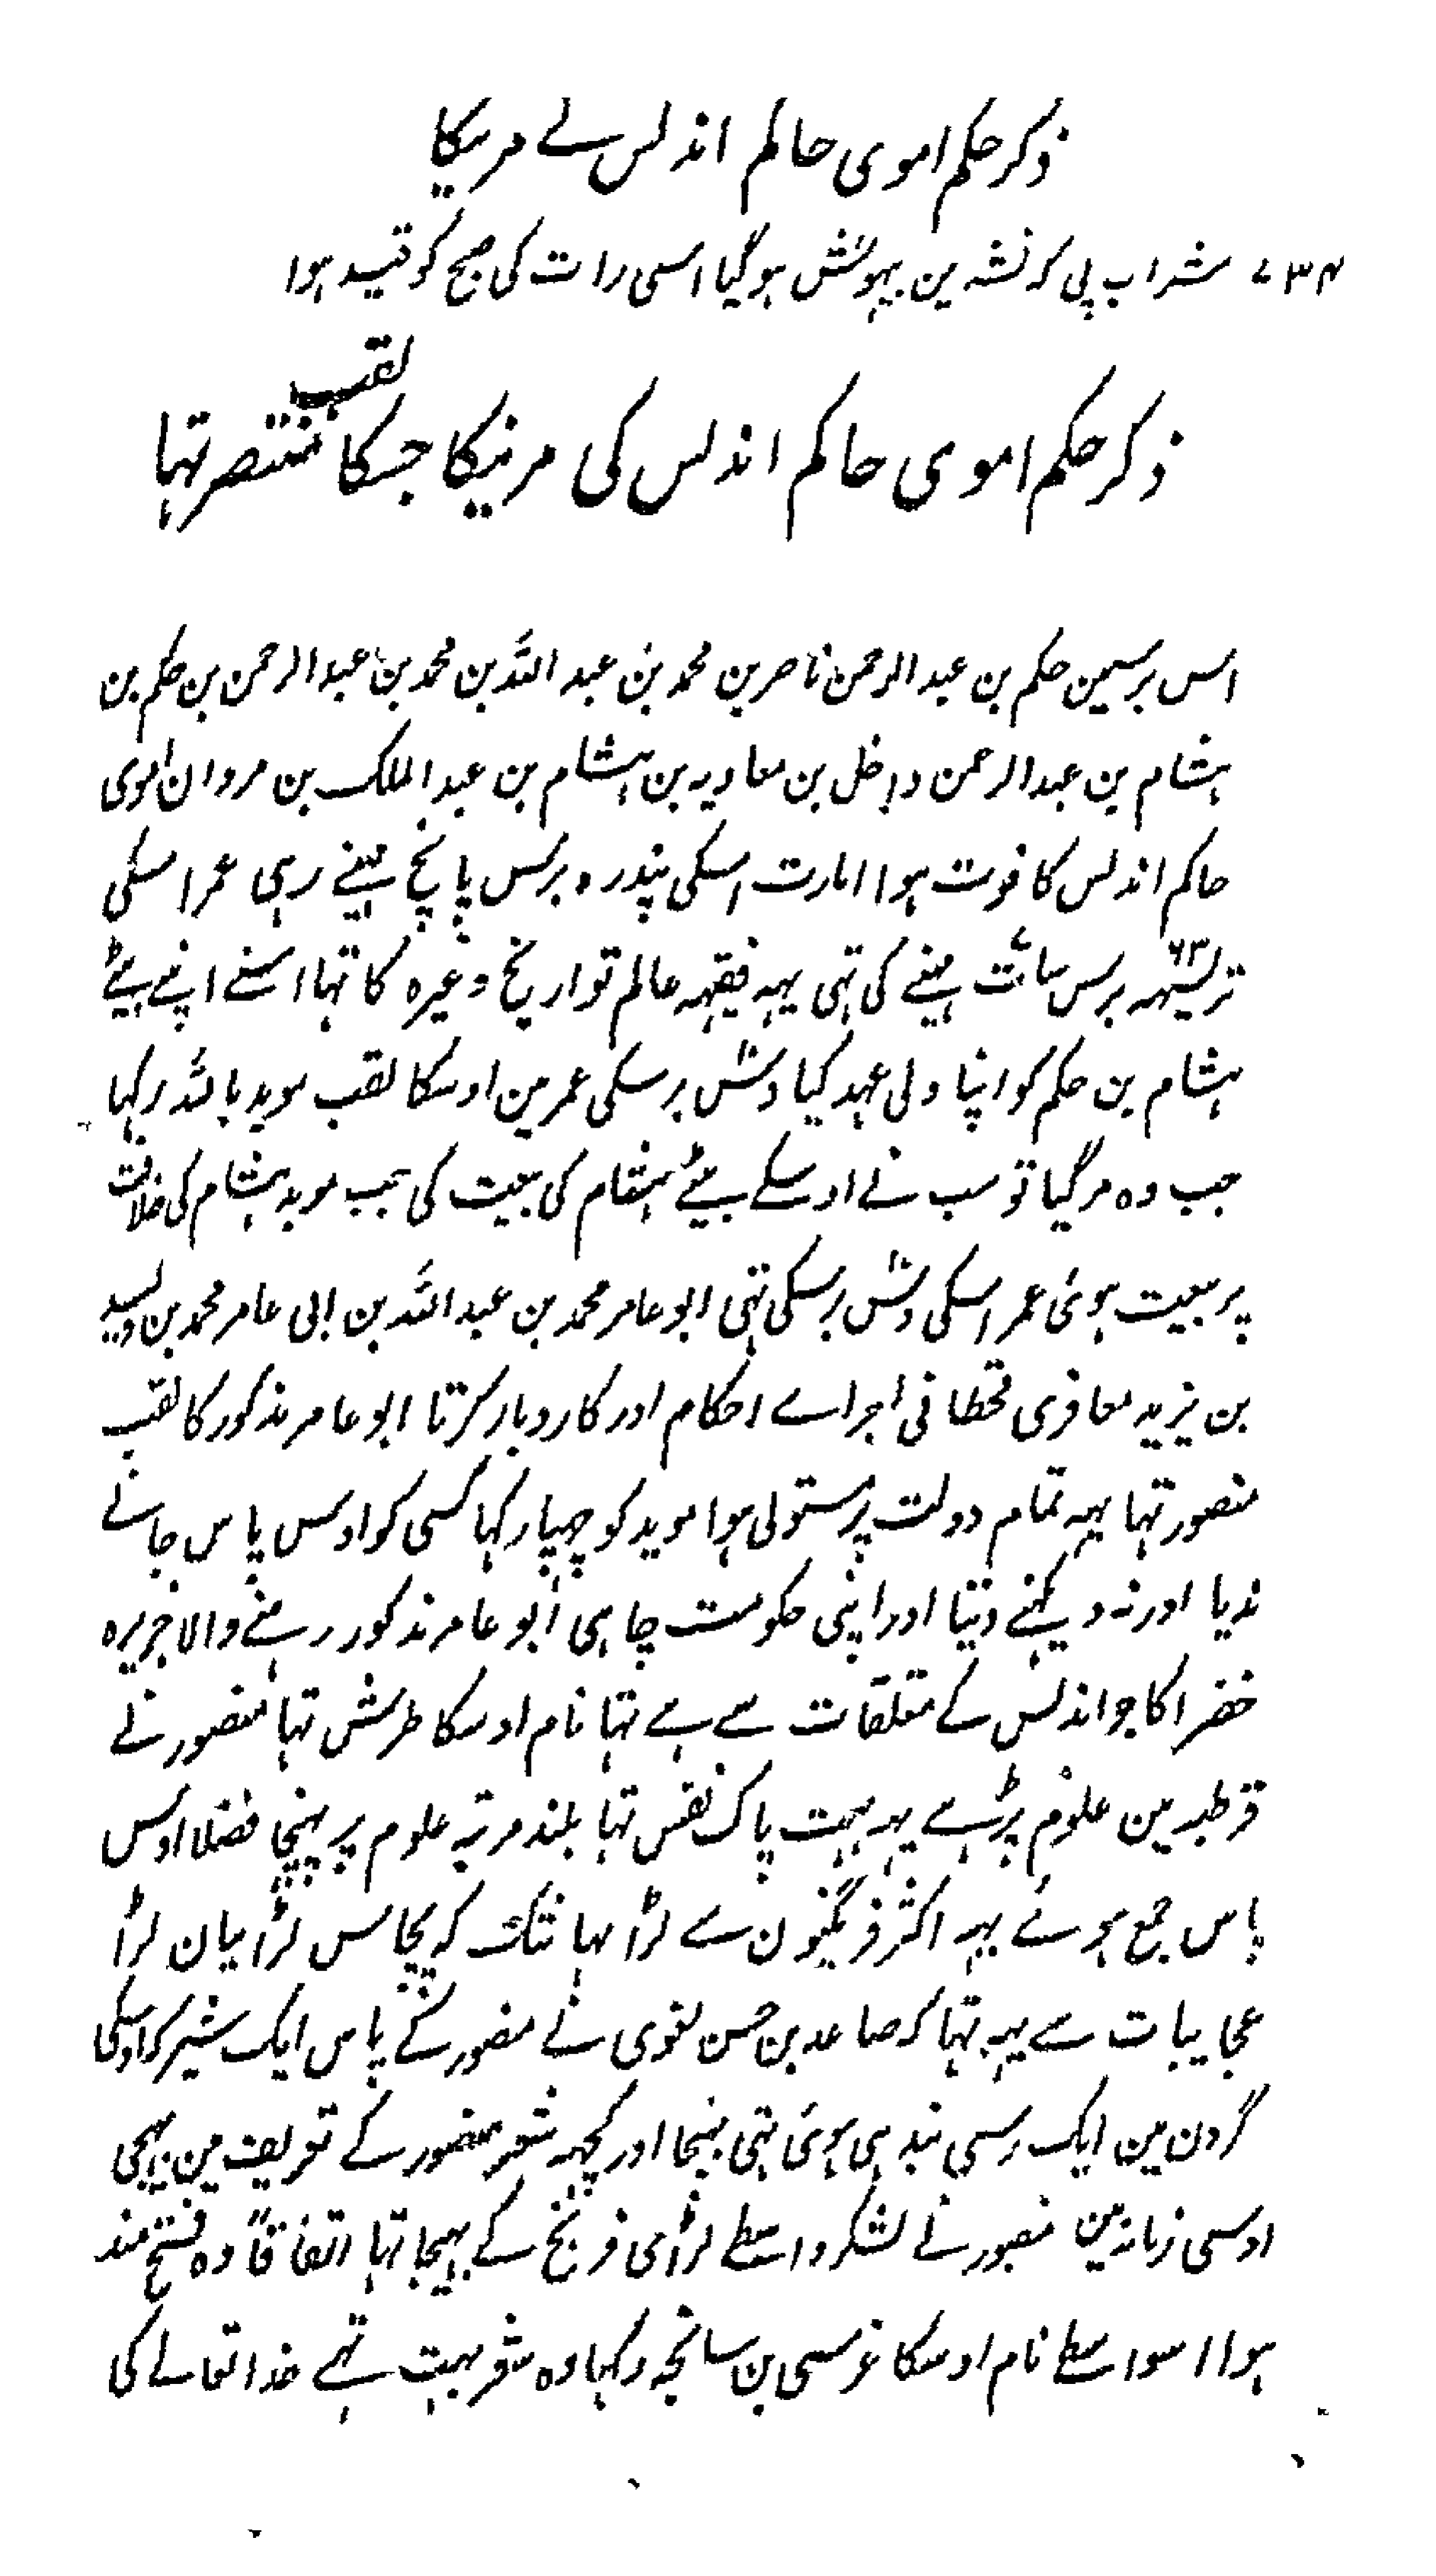 ذکر حکم اموی حاکم اندلس کے مرنیکا
۷۳۴ شراب پی کر نشہ ین بیہوش ہو گیا اسی رات کی صبح کو قید ہوا
لقب
ذکر حکم اموی حاکم اندلس کی مرنیکا جسکا منتصر تہا
اس برسمین حکم بن عبد الرحمن ناصر بن محمد بن عبد اللہ بن محمد بن عبد الرحمن بن حکم بن
ہشام بن عبد الرحمن داخل بن معاویہ بن ہشام بن عبد الملک بن مروان اموی
حاکم اندلس کا فوت ہوا امارت اسکی پندرہ برس پانچ مہینے رہی عمر اسکی
۶۳
ترلیسٹہہ برس سات مہینے کی تہی یہہ فقیہہ عالم تواریخ وغیرہ کا تہا اسنے اپنے بیٹے
ہشام بن حکم کو اپنا ولی عہد کیا دس برسکی عمر مین اوسکا لقب موید باللہ رکہا
جب وہ مر گیا تو سب نے اوسکے بیٹے ہشام کی بیعت کی جب موید ہشام کی خلافت
پر بیعت ہوئی عمر اسکی دس برسکی تہی ابو عامر محمد بن عبد اللہ بن ابی عامر محمد بن ولید
بن یزید معافری قحطانی اجراے احکام اور کاروبار کرتا ابو عامر مذکور کا لقب
منصور تہا یہہ تمام دولت پر مستولی ہوا موید کو چہپا رکہا کسی کو اوس پاس جانے
ندیا اور نہ دیکہنے دیتا اور اپنی حکومت چاہی ابو عامر مذکور رہنے والا جزیرہ
خضرا کا جو اندلس کے متعلقات سے ہے تہا نام اوسکا طرش تہا منصور نے
قرطبہ مین علوم پڑہے یہہ بہت پاک نفس تہا بلند مرتبہ علوم پر پہنچا فضلا اوس
پاس جمع ہوئے یہہ اکثر فرنگیون سے لڑا یہانتک کہ پچاس لڑائیان لڑا
عجایبات سے یہہ تہا کہ صاعد بن حسن لغوی نے منصور کے پاس ایک شیر کو اوسکی
گردن مین ایک رسی بندہی ہوئی تہی بہیجا اور کچہہ شعر منصور کے تعریف مین بہیجی
اوسی زمانہ مین منصور نے لشکر واسطے لڑائی فرنج کے بہیجا تہا اتفاقاً وہ فتح مند
ہوا اسواسطے نام اوسکا غرسی بن سانجہ رکہا وہ شعر بہت تہے خدا تعالے کی